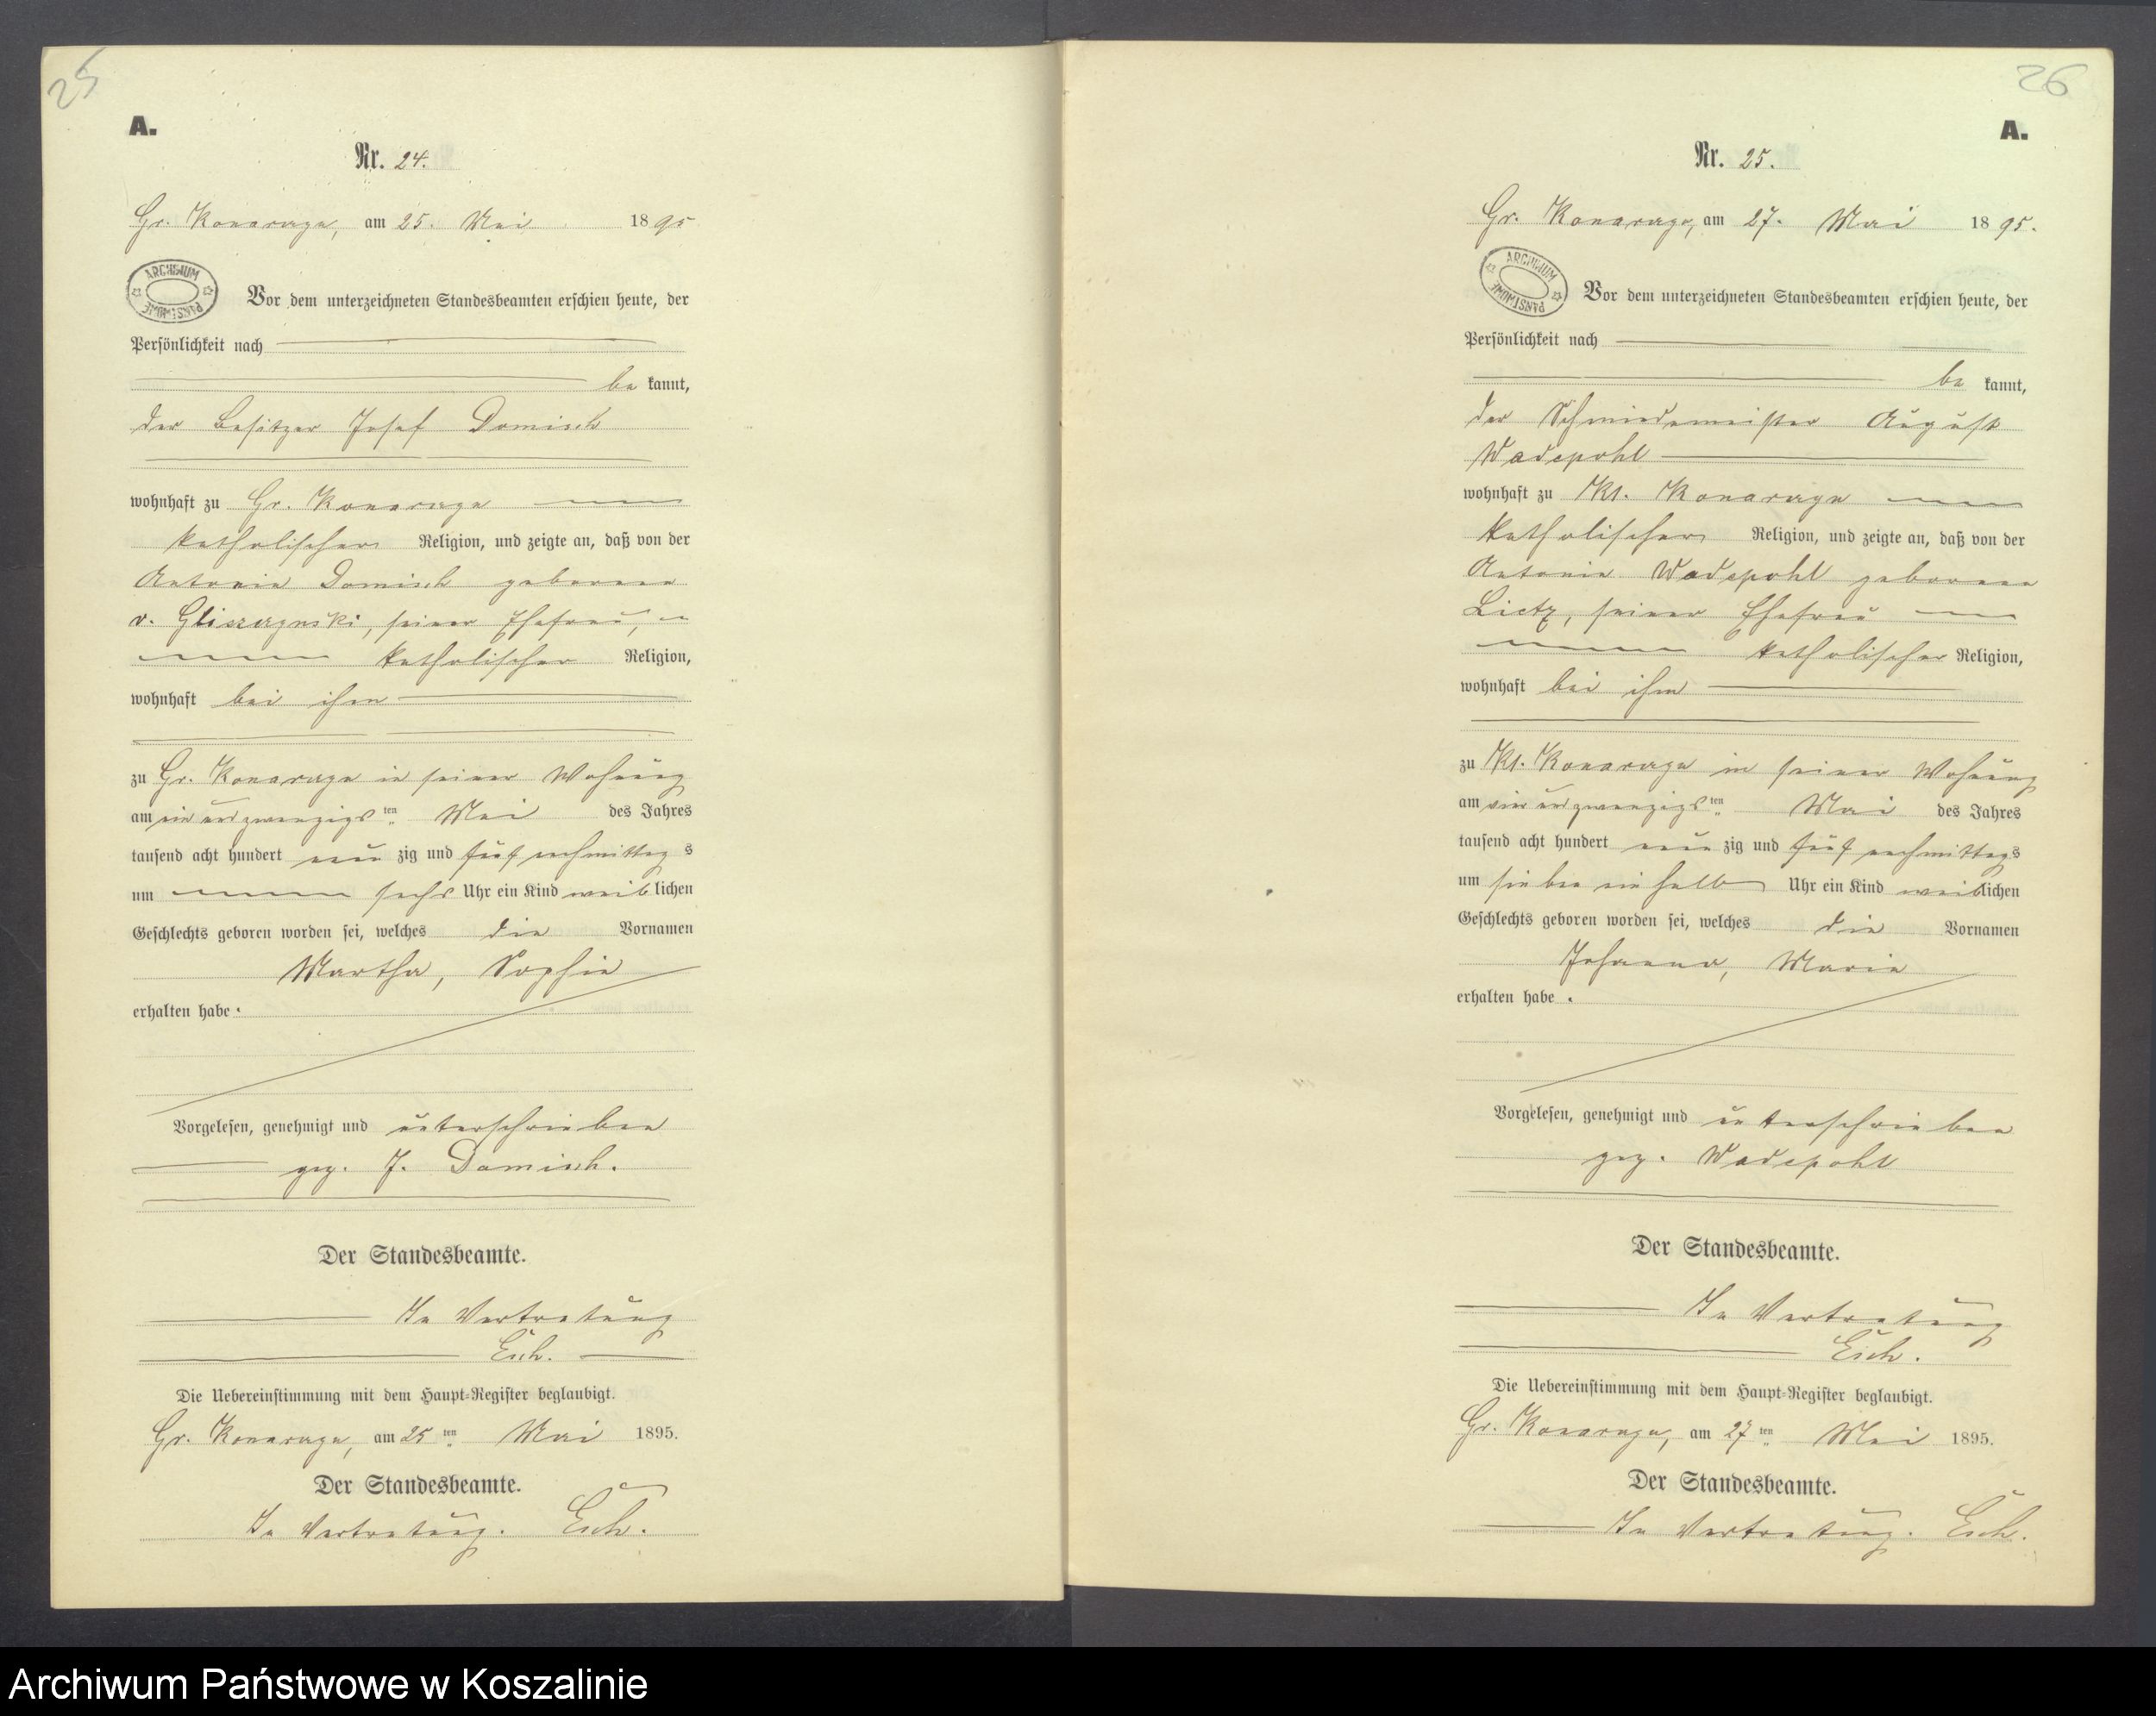 25
A.
Nr. 24.
Gr. Konarzyn, am 25. Mai 1895
ARCHIWUM PAŃSTWOWE
Vor dem unterzeichneten Standesbeamten erschien heute, der
Persönlichkeit nach
be kannt,
der Besitzer Josef Domisch
wohnhaft zu Gr. Konarzyn
katholischer Religion, und zeigte an, daß von der
Antonie Domisch geborenen
v. Gliszczynski, seiner Ehefrau,
katholischer Religion,
wohnhaft bei ihm
zu Gr. Konarzyn in seiner Wohnung
am ein und zwanzigsten Mai des Jahres
tausend acht hundert neun zig und fünf nachmittag s
um sechs Uhr ein Kind weiblichen
Geschlechts geboren worden sei, welches die Vornamen
Martha, Sophie
erhalten habe.
Vorgelesen, genehmigt und unterschrieben
gez. J. Domisch.
Der Standesbeamte.
In Vertretung
Esch.
Die Uebereinstimmung mit dem Haupt-Register beglaubigt.
Gr. Konarzyn, am 25ten Mai 1895.
Der Standesbeamte.
In Vertretung. Esch.
26
A.
Nr. 25.
Gr. Konarzyn, am 27. Mai 1895.
ARCHIWUM PAŃSTWOWE
Vor dem unterzeichneten Standesbeamten erschien heute, der
Persönlichkeit nach
be kannt,
der Schmiedemeister August
Wadepohl
wohnhaft zu Kl. Konarzyn
katholischer Religion, und zeigte an, daß von der
Antonie Wadepohl geborenen
Lietz, seiner Ehefrau
katholischer Religion,
wohnhaft bei ihm
zu Kl. Konarzyn in seiner Wohnung
am vier und zwanzigsten Mai des Jahres
tausend acht hundert neun zig und fünf nachmittags
um sieben ein halb Uhr ein Kind weiblichen
Geschlechts geboren worden sei, welches die Vornamen
Johanna, Marie
erhalten habe.
Vorgelesen, genehmigt und unterschrieben
gez. Wadepohl
Der Standesbeamte.
In Vertretung
Esch.
Die Uebereinstimmung mit dem Haupt-Register beglaubigt.
Gr. Konarzyn, am 27ten Mai 1895.
Der Standesbeamte.
In Vertretung. Esch.
Archiwum Państwowe w Koszalinie